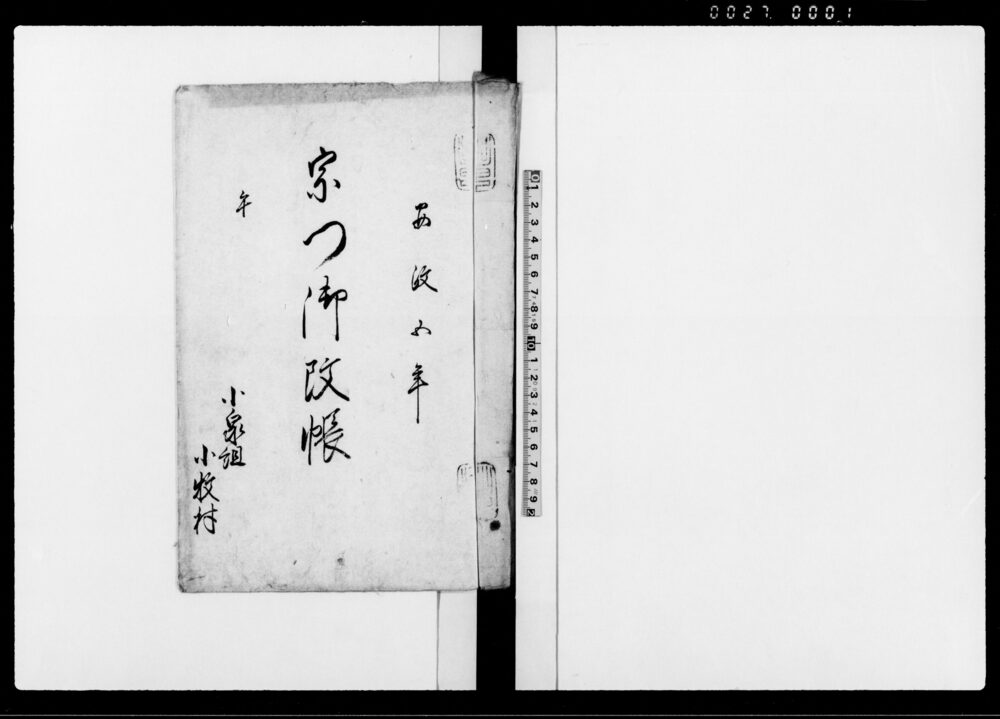 0027 0001
安政五年
宗門御改帳
午
小泉組
小牧村
0 1 2 3 4 5 6 7 8 9 10 1 2 3 4 5 6 7 8 9 2